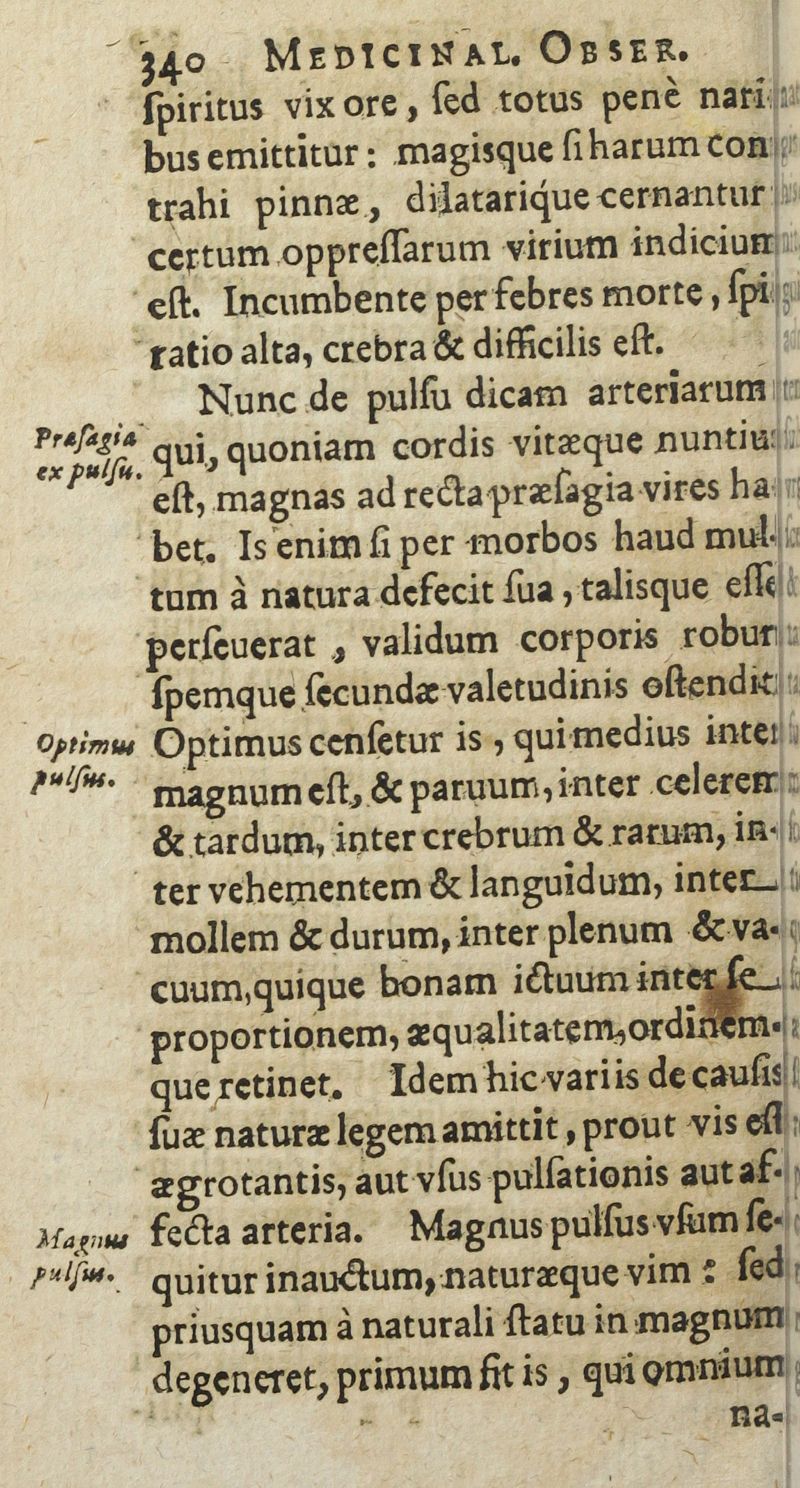 340 MEDICINAL. OBSER.
ſpiritus vix ore, ſed totus penè nari
bus emittitur: magisque ſi harum con
trahi pinnæ, dilatariq́ue cernantur
certum oppreſſarum virium indicium
eſt. Incumbente per febres morte, ſpi
ratio alta, crebra & difficilis eſt.
Nunc de pulſu dicam arteriarum
Præſagia
ex pulſu.
qui, quoniam cordis vitæque nuntiu
eſt, magnas ad recta præſagia vires ha
bet. Is enim ſi per morbos haud mul-
tum à natura defecit ſua, talisque eſſe
perſeuerat, validum corporis robur
ſpemque ſecundæ valetudinis oſtendit
Optimus
pulſus.
Optimus cenſetur is, qui medius inter
magnum eſt, & paruum, inter celerem
& tardum, inter crebrum & rarum, in-
ter vehementem & languidum, inter
mollem & durum, inter plenum & va-
cuum, quique bonam ictuum inter ſe
proportionem, æqualitatem, ordinem-
que retinet. Idem hic variis de cauſis
ſuæ naturæ legem amittit, prout vis eſt
ægrotantis, aut vſus pulſationis aut af-
Magnus
pulſus.
fecta arteria. Magnus pulſus vſum ſe-
quitur inauctum, naturæque vim: ſed
priusquam à naturali ſtatu in magnum
degeneret, primum fit is, qui omnium
na-